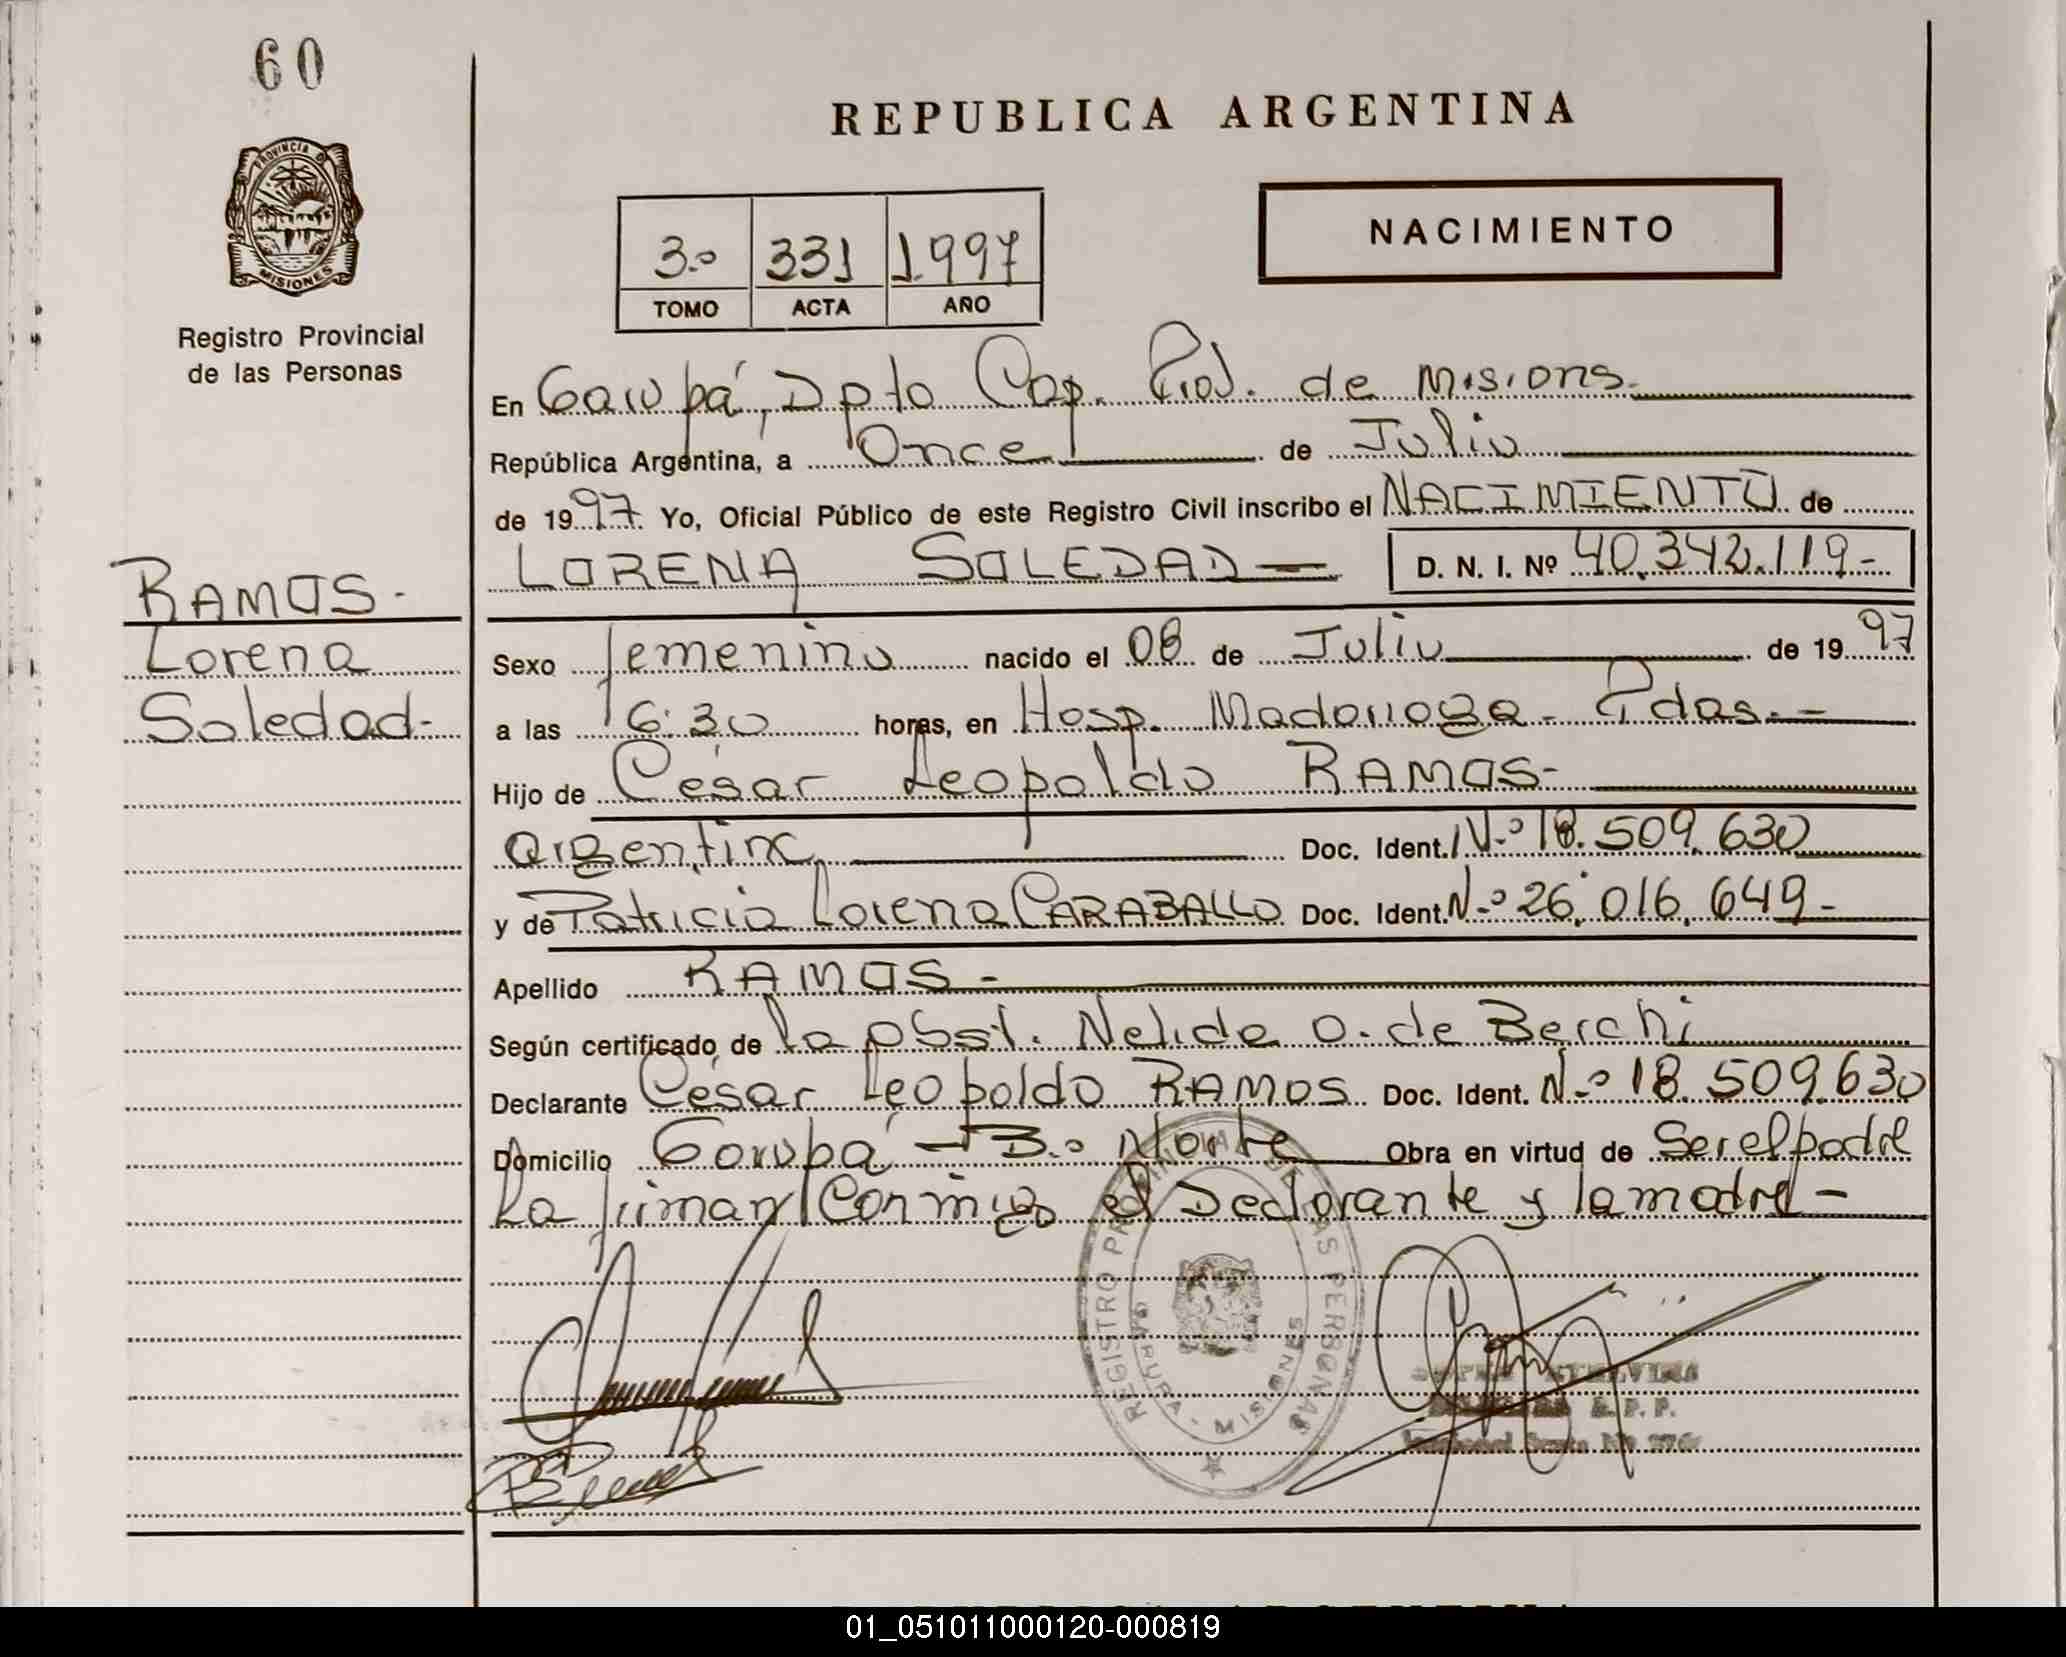 60
REPUBLICA ARGENTINA
PROVINCIA D
MISIONES
Registro Provincial
de las Personas
3.º 331 1.997
TOMO ACTA AÑO
NACIMIENTO
En Garupá, Dpto Cap. Prov. de Misions.
República Argentina, a Once de Julio
de 1997. Yo, Oficial Público de este Registro Civil inscribo el NACIMIENTO de
LORENA SOLEDAD D. N. I. Nº 40.342.119-
RAMOS.
Lorena
Soledad-
Sexo femenino nacido el 08 de Julio de 1997
a las 16:30 horas, en Hosp. Madariaga - Pdas.-
Hijo de César Leopoldo RAMOS-
argentino, Doc. Ident. N.º 18.509.630
y de Patricia Lorena CARABALLO Doc. Ident. N.º 26.016.649-
Apellido RAMOS-
Según certificado de la obst. Nelida O. de Berchi
Declarante César Leopoldo RAMOS Doc. Ident. N.º 18.509.630
Domicilio Garupá - B.º Norte Obra en virtud de Ser el padre
La firman Conmigo el Declarante y la madre-
REGISTRO PROVINCIAL DE LAS PERSONAS
GARUPA - MISIONES
R. P. P.
01_051011000120-000819